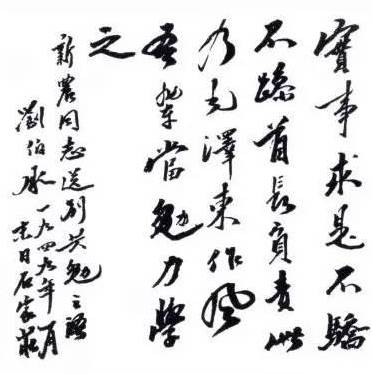 實事求是不驕
不躁首長負責此
乃毛澤東作風
吾輩當勉力學
之
新農同志送別共勉之語
劉伯承一九四九年一月
日石家莊